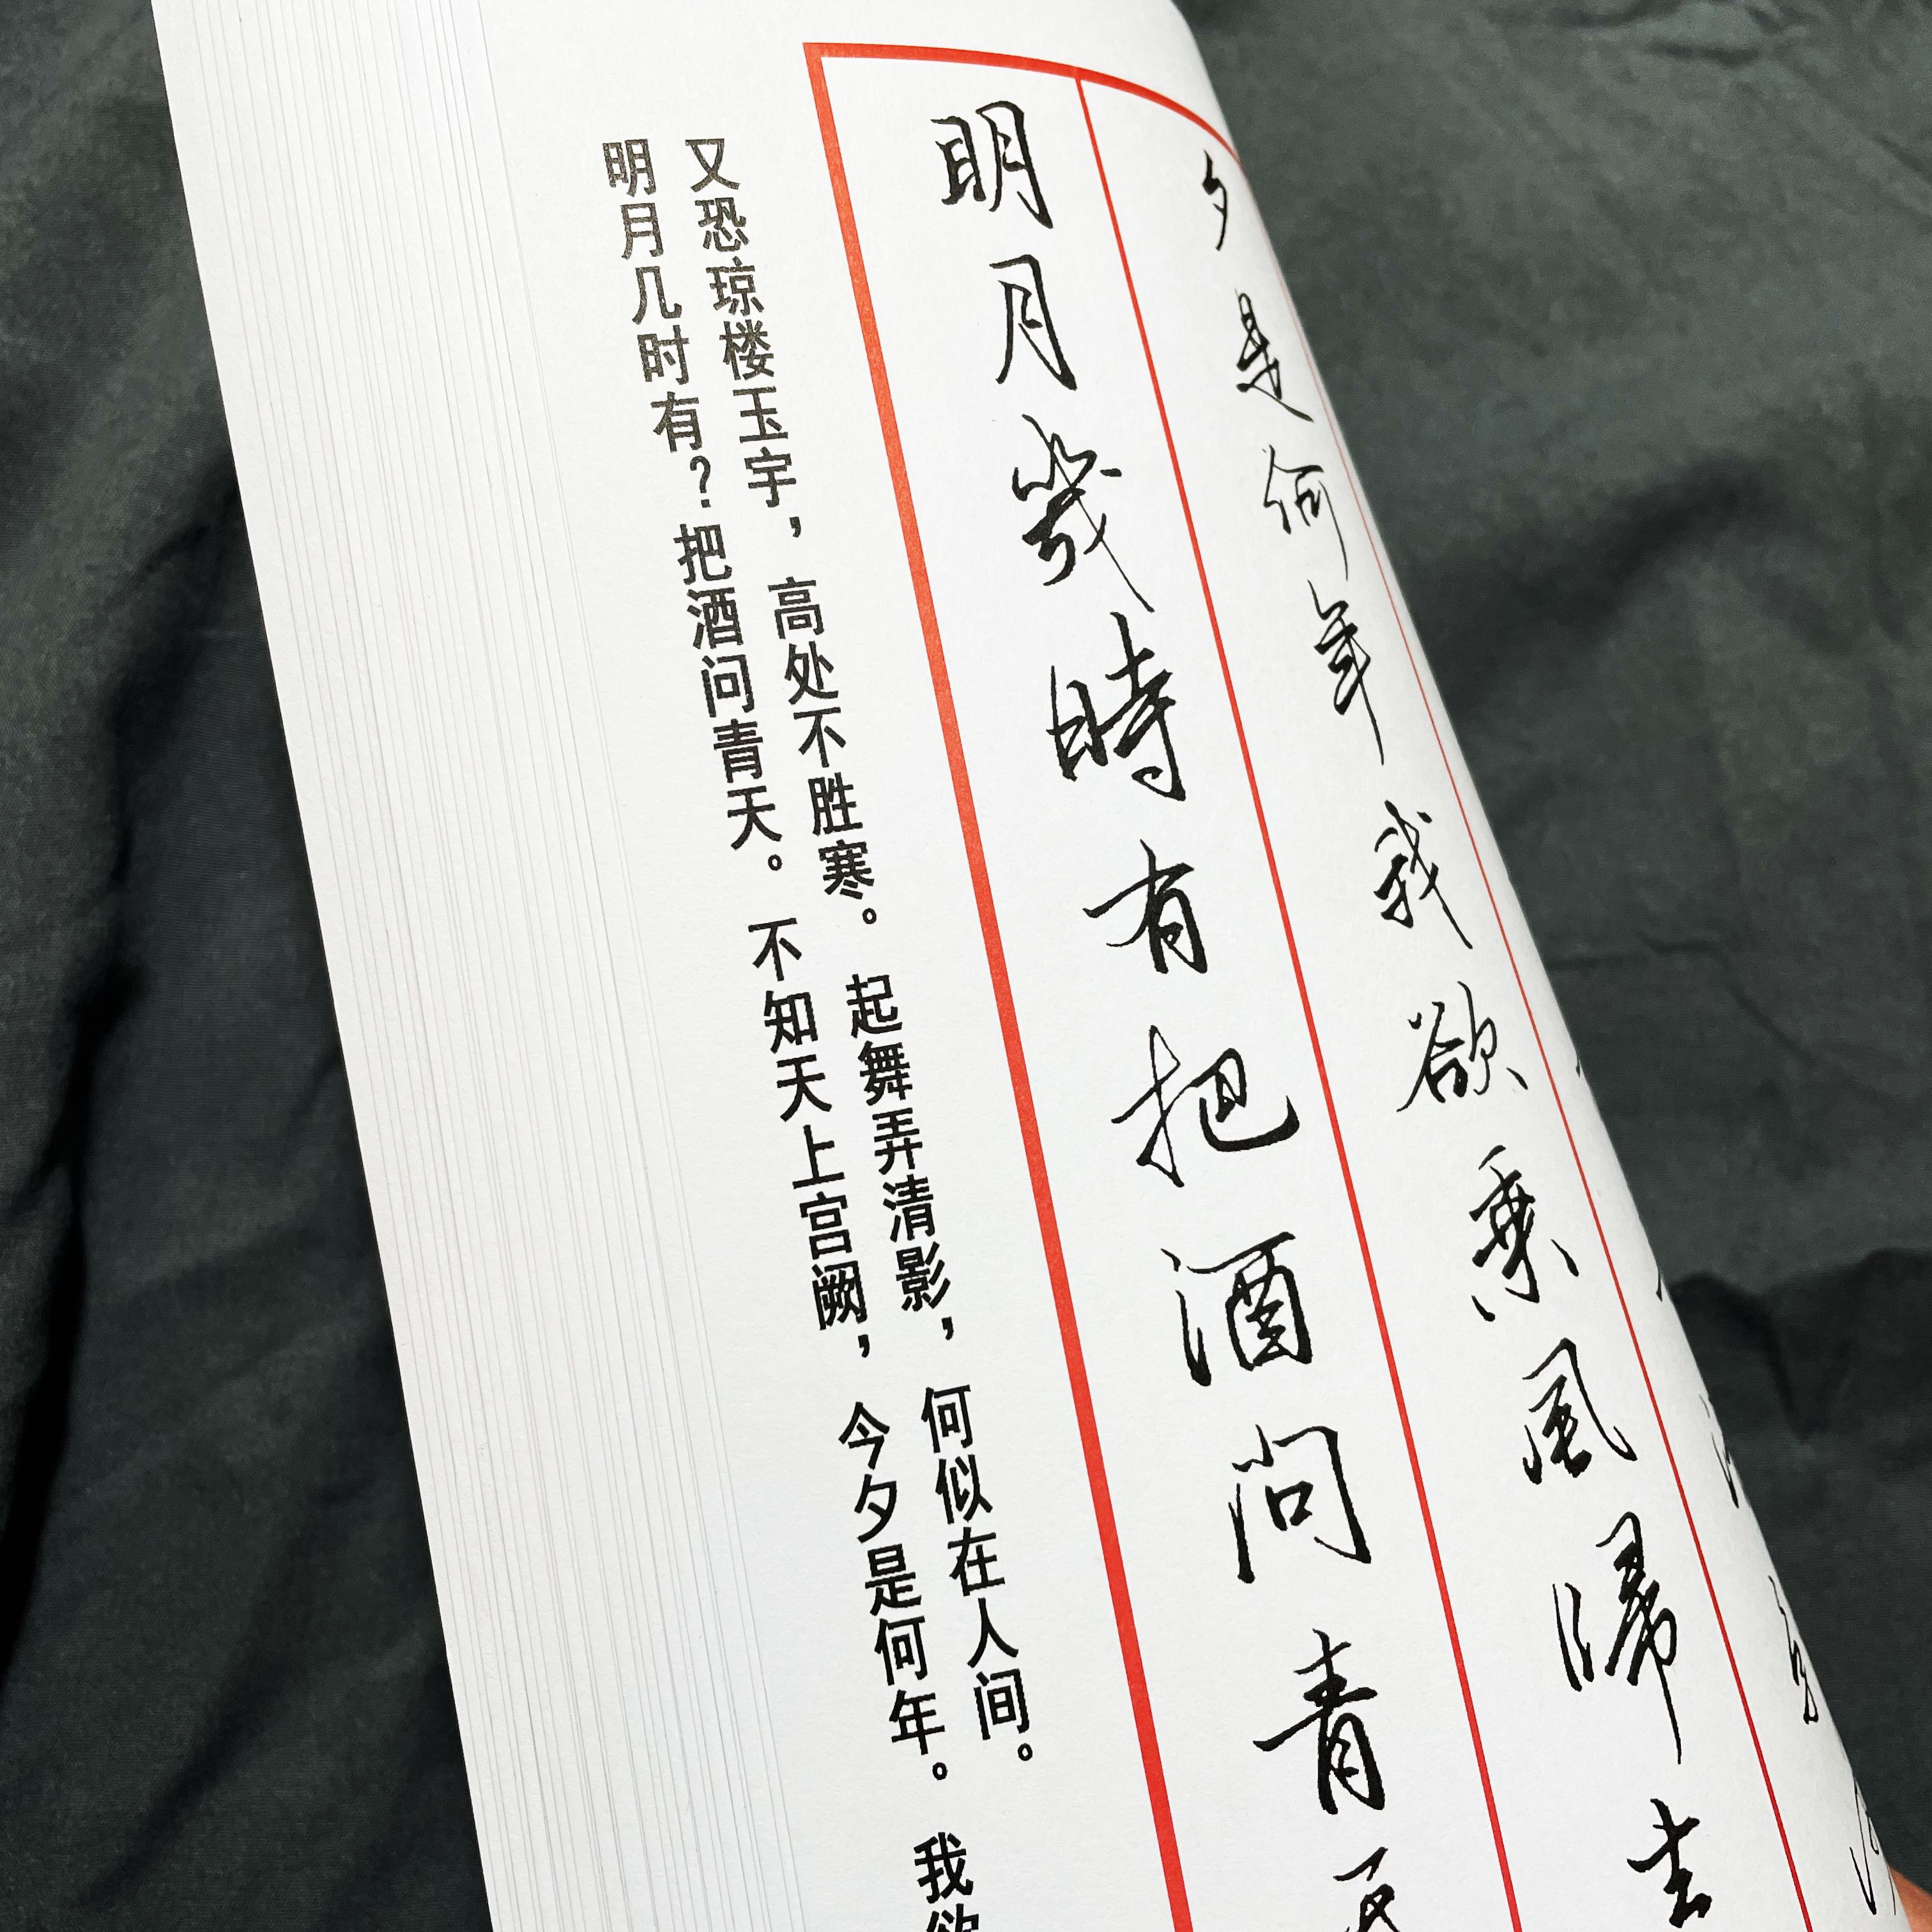 明月几时有？把酒问青天。不知天上宫阙，今夕是何年。我欲
又恐琼楼玉宇，高处不胜寒。起舞弄清影，何似在人间。
明月幾時有把酒問青
夕是何年我欲乘風歸去